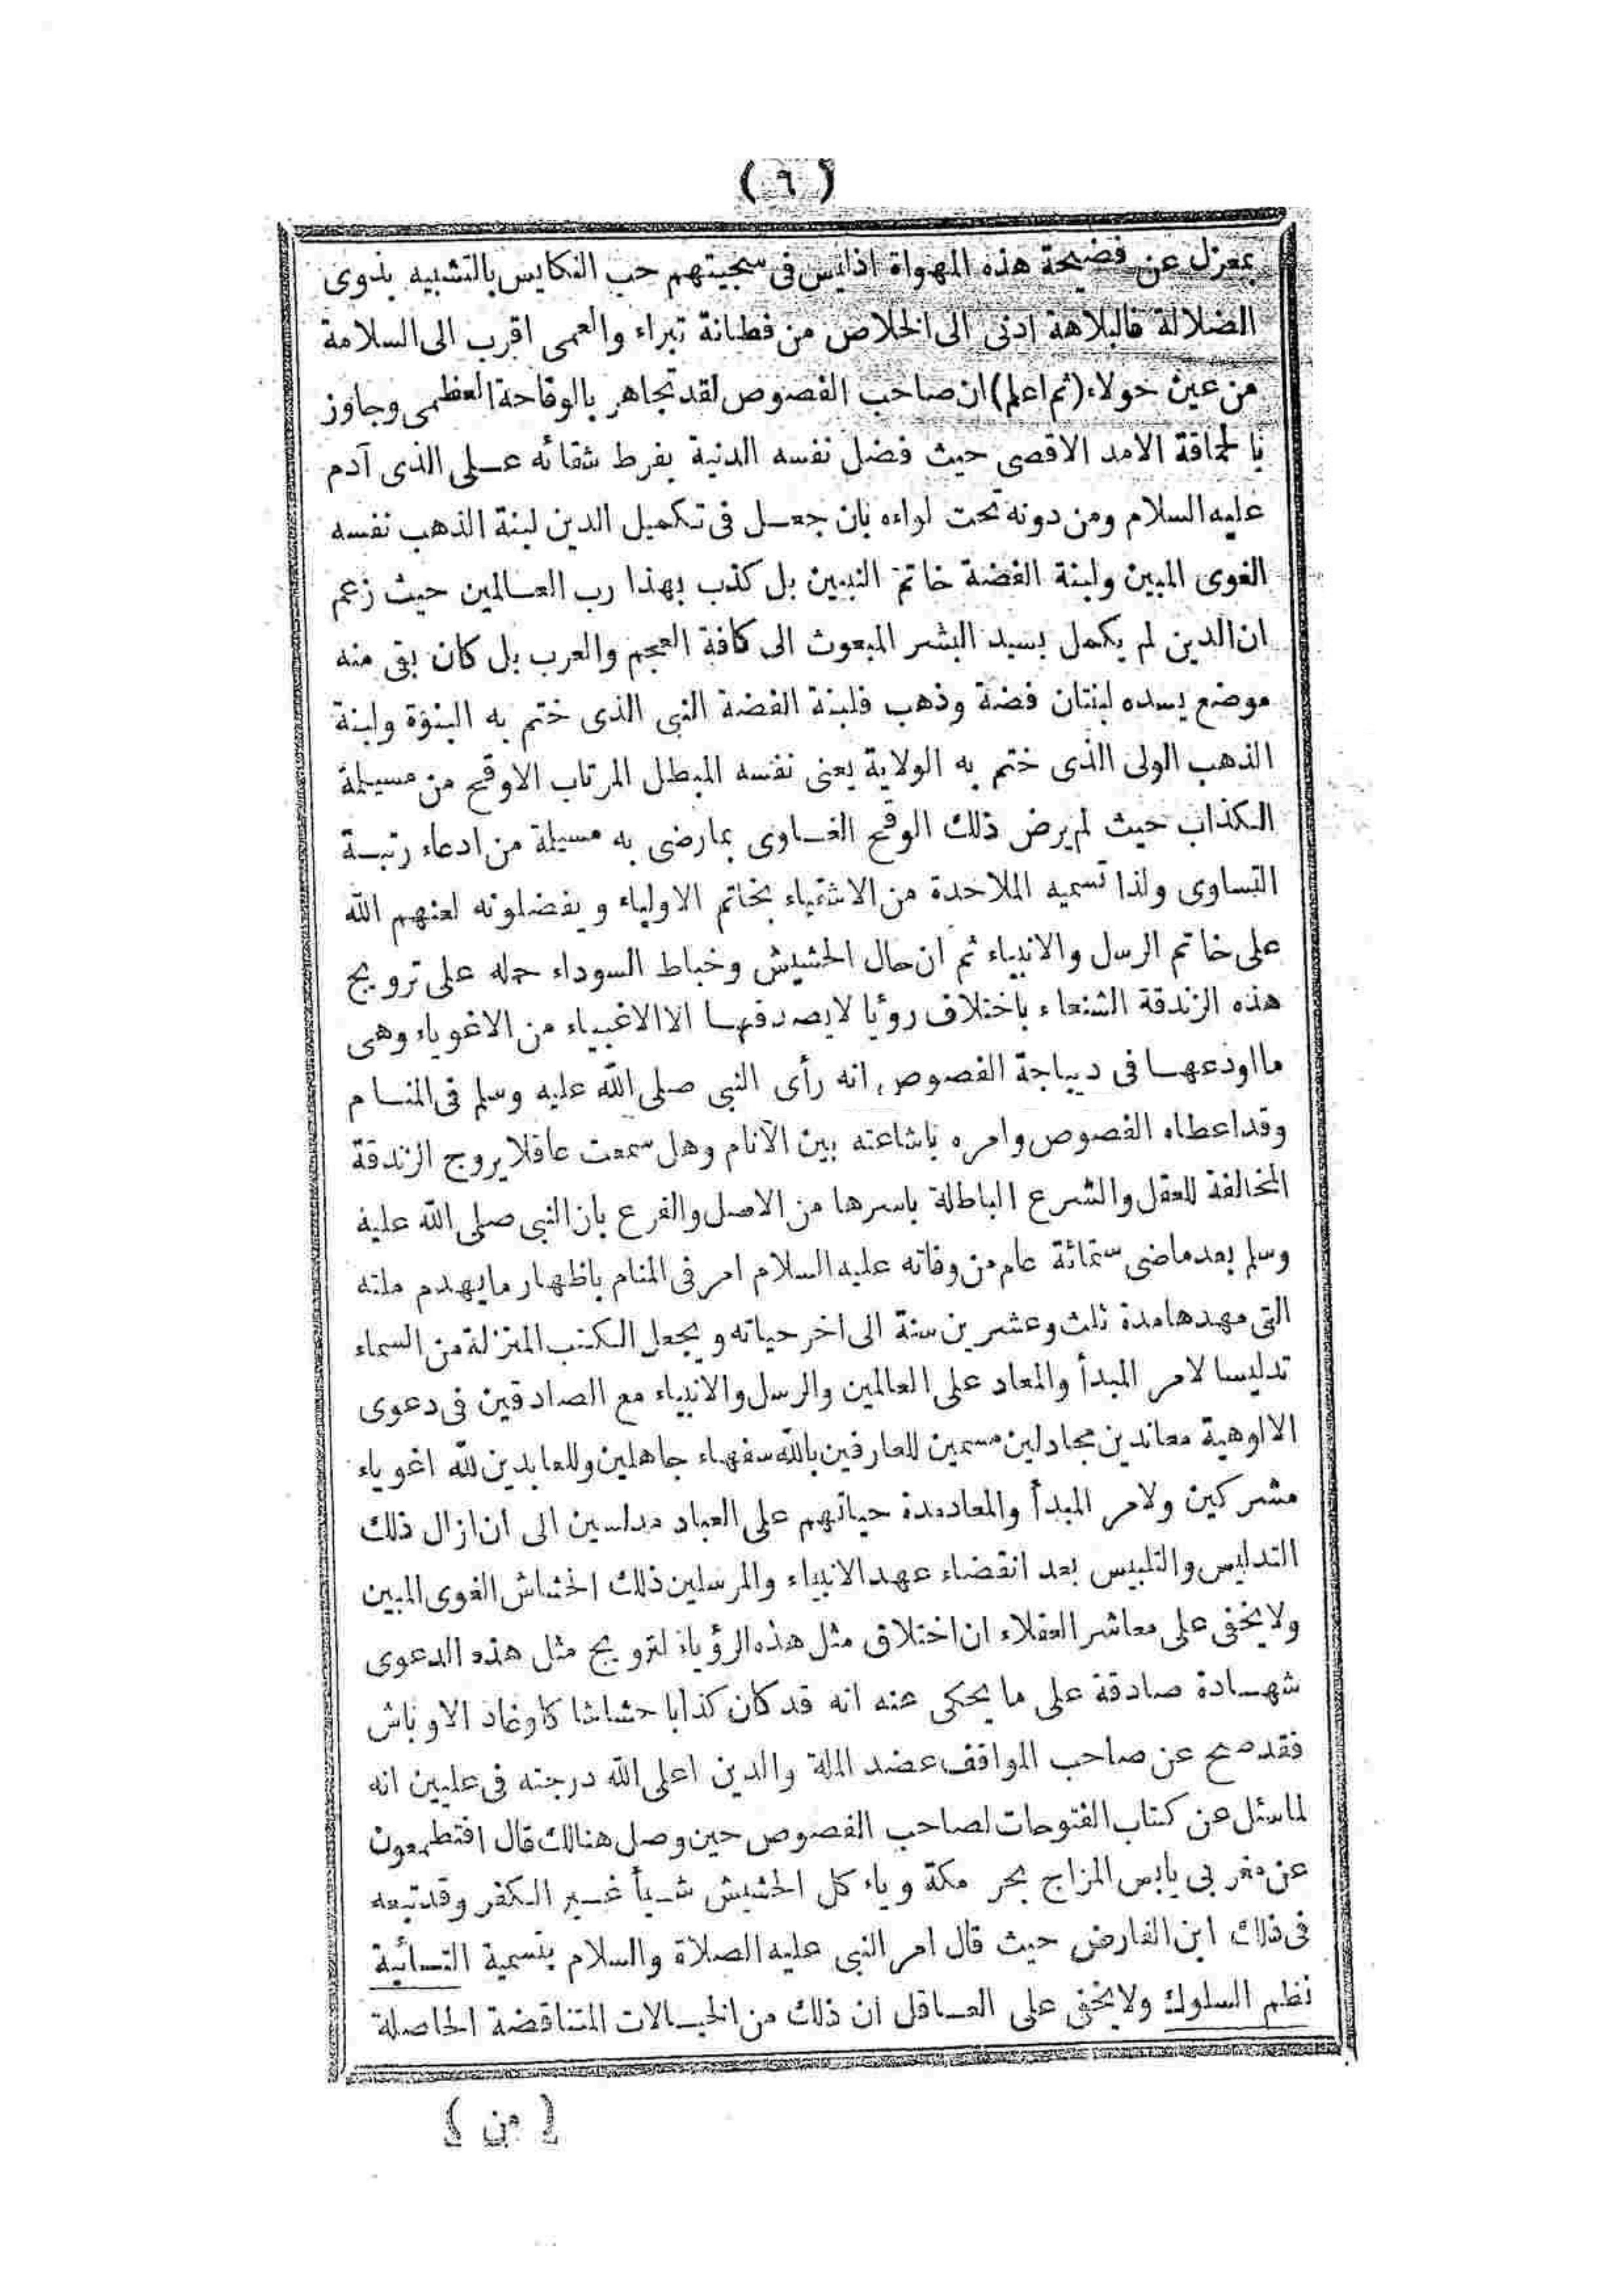 ( ٦ )
بمعزل عن فضيحة هذه المهواة اذليس فى سجيتهم حب التكايس بالتشبيه بذوى
الضلالة فالبلاهة ادنى الى الخلاص من فطانة تبراء والعمى اقرب الى السلامة
من عين حولاء (ثم اعلم) ان صاحب الفصوص لقد تجاهر بالوقاحة العظمى وجاوز
بالحماقة الامد الاقصى حيث فضل نفسه الدنية بفرط شقائه على الذى آدم
عليه السلام ومن دونه تحت لواءه بان جعل فى تكميل الدين لبنة الذهب نفسه
الغوى المبين ولبنة الفضة خاتم النبيين بل كذب بهذا رب العالمين حيث زعم
ان الدين لم يكمل بسيد البشر المبعوث الى كافة العجم والعرب بل كان بقى منه
موضع يسده لبنتان فضة وذهب فلبنة الفضة النبى الذى ختم به النبوة ولبنة
الذهب الولى الذى ختم به الولاية يعنى نفسه المبطل المرتاب الاوقح من مسيلمة
الكذاب حيث لم يرض ذلك الوقح الغاوى بما رضى به مسيلمة من ادعاء رتبة
التساوى ولذا تسميه الملاحدة من الاشقياء بخاتم الاولياء ويفضلونه لعنهم الله
على خاتم الرسل والانبياء ثم ان حال الحشيش وخباط السوداء حمله على ترويج
هذه الزندقة الشنعاء باختلاف رؤيا لايصدقها الا الاغبياء من الاغوياء وهى
ما اودعها فى ديباجة الفصوص انه رأى النبى صلى الله عليه وسلم فى المنام
وقد اعطاه الفصوص وامره باشاعته بين الانام وهل سمعت عاقلا يروج الزندقة
المخالفة للعقل والشرع الباطلة باسرها من الاصل والفرع بان النبى صلى الله عليه
وسلم بعد ماضى ستمائة عام من وفاته عليه السلام امر فى المنام باظهار ما يهدم ملته
التى مهدها مدة ثلث وعشرين سنة الى اخر حياته ويجعل الكتب المنزلة من السماء
تدليسا لامر المبدأ والمعاد على العالمين والرسل والانبياء مع الصادقين فى دعوى
الالوهية معاندين مجادلين مسمين للعارفين بالله سفهاء جاهلين وللعابدين لله اغوياء
مشركين ولامر المبدأ والمعاد مدة حياتهم على العباد مدلسين الى ان ازال ذلك
التدليس والتلبيس بعد انقضاء عهد الانبياء والمرسلين ذلك الحشاش الغوى المبين
ولا يخفى على معاشر العقلاء ان اختلاق مثل هذه الرؤيا لترويج مثل هذه الدعوى
شهادة صادقة على ما يحكى عنه انه قد كان كذابا حشاشا كاوغاد الاوباش
فقد صح عن صاحب المواقف عضد الملة والدين اعلى الله درجته فى عليين انه
لما سئل عن كتاب الفتوحات لصاحب الفصوص حين وصل هنالك قال افتطمعون
عن مغربى يابس المزاج بحر مكة وياء كل الحشيش شيأ غير الكفر وقد تبعه
فى ذلك ابن الفارض حيث قال امر النبى عليه الصلاة والسلام بتسمية التائية
نظم السلوك ولا يخفى على العاقل ان ذلك من الخيالات المتناقضة الحاصلة
( من )